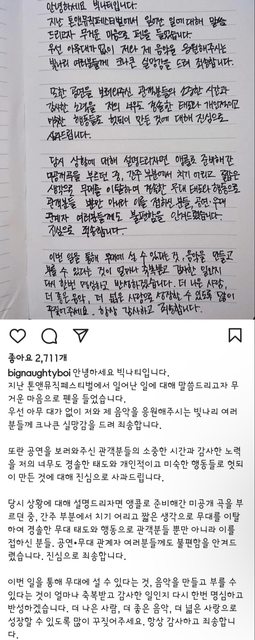 안녕하세요 빅나티입니다.
지난 톤앤뮤직페스티벌에서 일어난 일에 대해 말씀
드리고자 무거운 마음으로 펜을 들었습니다.
우선 아무 대가 없이 저와 제 음악을 응원해주시는
빛나리 여러분들께 크나큰 실망감을 드려 죄송합니다.
또한 공연을 보러와주신 관객분들의 소중한 시간과
감사한 노력을 저의 너무도 경솔한 태도와 개인적이고
미숙한 행동들로 헛되이 만든 것에 대해 진심으로
사과드립니다.
당시 상황에 대해 설명드리자면 앵콜로 준비해간
미공개 곡을 부르던 중, 간주 부분에서 치기 어리고 짧은
생각으로 무대를 이탈하여 경솔한 무대 태도와 행동으로
관객분들 뿐만 아니라 이를 접하신 분들, 공연·무대
관계자 여러분들께도 불편함을 안겨드렸습니다.
진심으로 죄송합니다.
이번 일을 통해 무대에 설 수 있다는 것, 음악을 만들고
부를 수 있다는 것이 얼마나 축복받고 감사한 일인지
다시 한번 명심하고 반성하겠습니다. 더 나은 사람,
더 좋은 음악, 더 넓은 사랑으로 성장할 수 있도록 많이
꾸짖어주세요. 항상 감사하고 죄송합니다.
좋아요 2,711개
bignaughtyboi 안녕하세요 빅나티입니다.
지난 톤앤뮤직페스티벌에서 일어난 일에 대해 말씀드리고자 무
거운 마음으로 펜을 들었습니다.
우선 아무 대가 없이 저와 제 음악을 응원해주시는 빛나리 여러
분들께 크나큰 실망감을 드려 죄송합니다.
또란 공연을 보러와주신 관객분들의 소중한 시간과 감사한 노력
을 저의 너무도 경솔한 태도와 개인적이고 미숙한 행동들로 헛되
이 만든 것에 대해 진심으로 사과드립니다.
당시 상황에 대해 설명드리자면 앵콜로 준비해간 미공개 곡을 부
르던 중, 간주 부분에서 치기 어리고 짧은 생각으로 무대를 이탈
하여 경솔한 무대 태도와 행동으로 관객분들 뿐만 아니라 이를
접하신 분들, 공연•무대 관계자 여러분들께도 불편함을 안겨드
렸습니다. 진심으로 죄송합니다.
이번 일을 통해 무대에 설 수 있다는 것, 음악을 만들고 부를 수
있다는 것이 얼마나 축복받고 감사한 일인지 다시 한번 명심하고
반성하겠습니다. 더 나은 사람, 더 좋은 음악, 더 넓은 사랑으로
성장할 수 있도록 많이 꾸짖어주세요, 항상 감사하고 죄송합니
다.